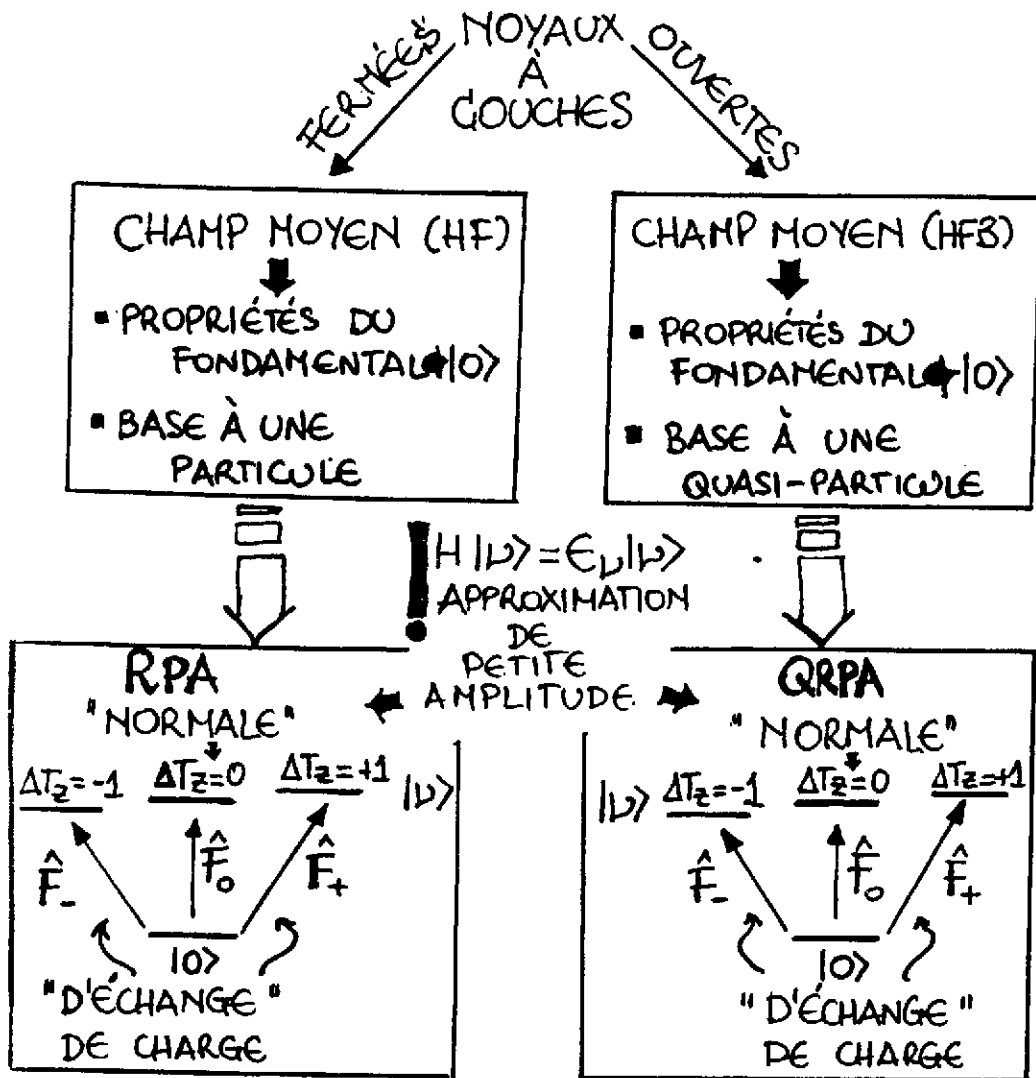 NOYAUX
À
COUCHES
FERMÉES
OUVERTES
CHAMP MOYEN (HF)
▪ PROPRIÉTÉS DU
FONDAMENTAL |0>
▪ BASE À UNE
PARTICULE
CHAMP MOYEN (HFB)
▪ PROPRIÉTÉS DU
FONDAMENTAL |0>
▪ BASE À UNE
QUASI-PARTICULE
! H|ν> = Єν|ν>
APPROXIMATION
DE
PETITE
AMPLITUDE
RPA
"NORMALE"
ΔTz=-1 ΔTz=0 ΔTz=+1 |ν>
F̂- F̂o F̂+
|0>
"D'ÉCHANGE"
DE CHARGE
QRPA
"NORMALE"
|ν> ΔTz=-1 ΔTz=0 ΔTz=+1
F̂- F̂o F̂+
|0>
"D'ÉCHANGE"
DE CHARGE